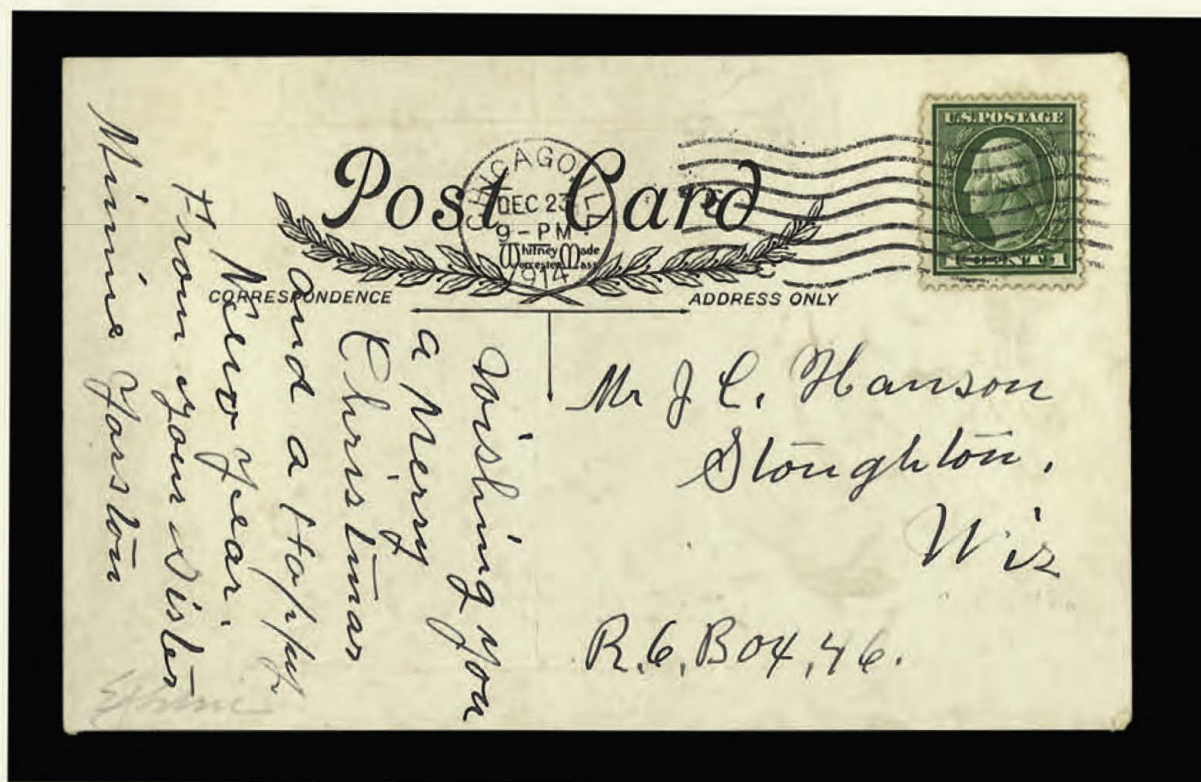 Post Card
CHICAGO, ILL.
DEC 23
9-PM
1914
Whitney Made
Worcester Mass
CORRESPONDENCE
ADDRESS ONLY
U.S. POSTAGE
1 CENT 1
Wishing you
a Merry
Christmas
and a Happy
New Year.
From your sister
Minnie
Mr J C. Hanson
Stoughton,
Wis
R.6, Box, 46.